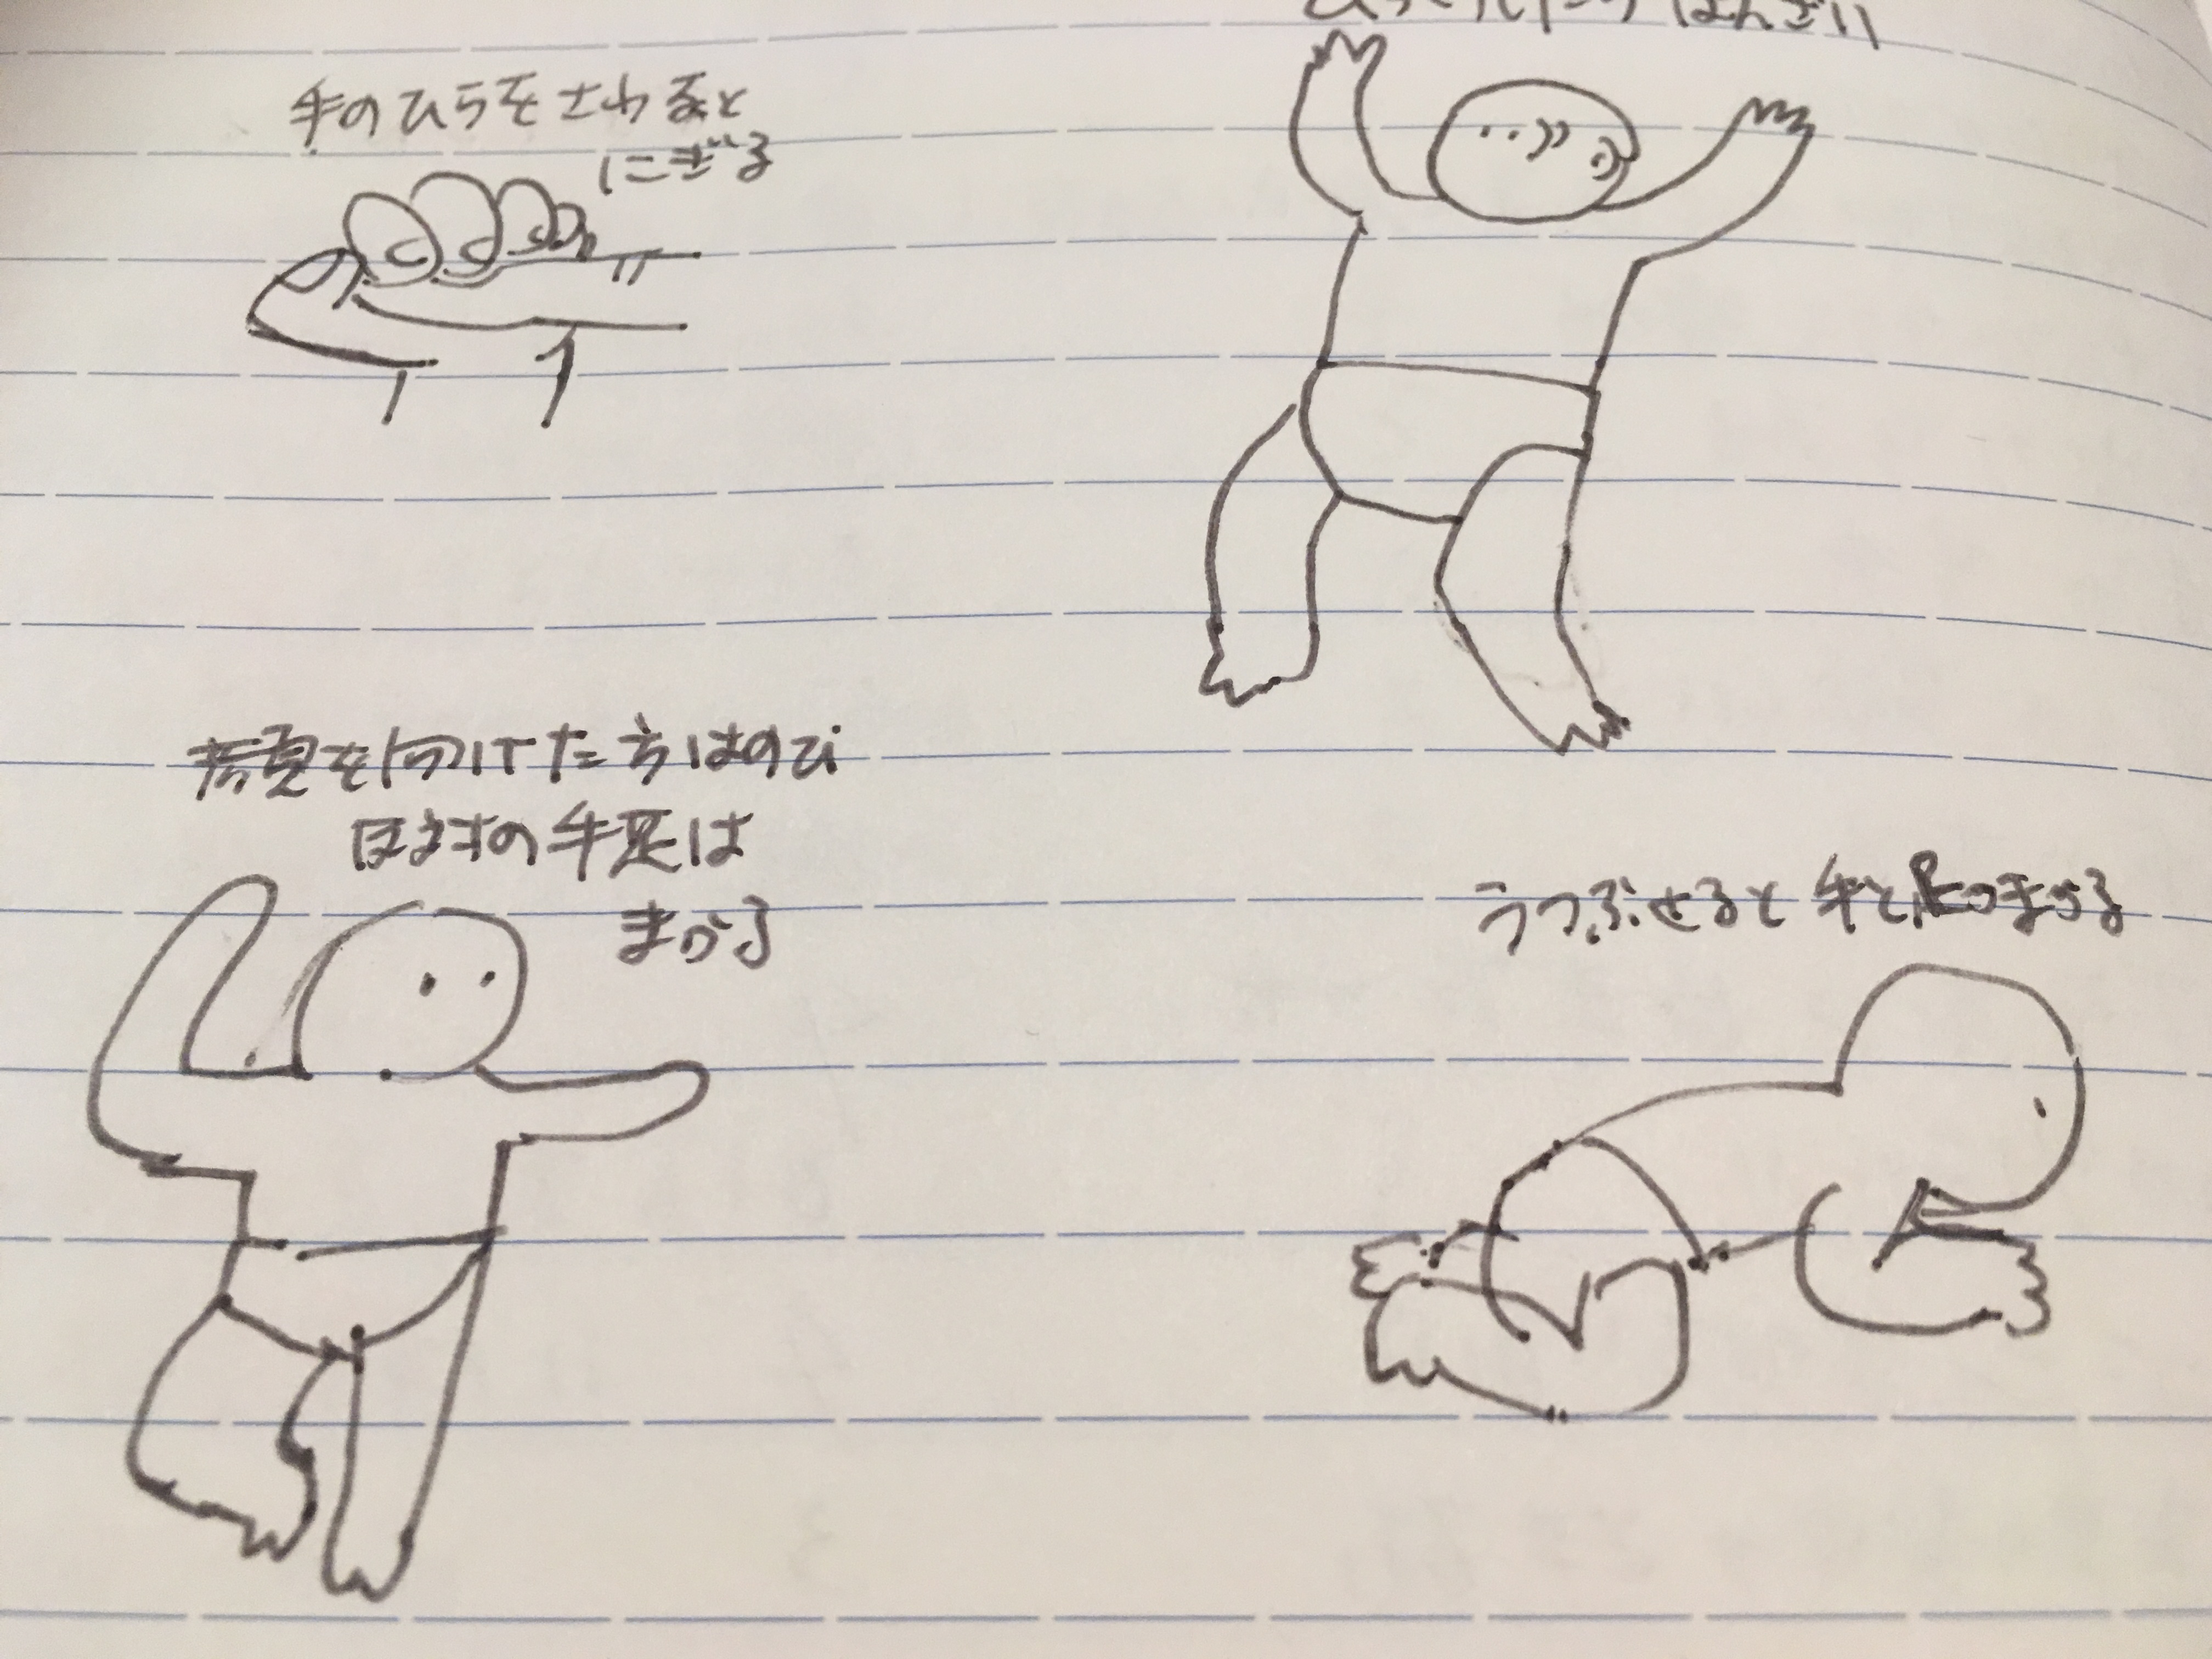 ばんざい
手のひらをさわると
にぎる
顔を向けた方はのび
反対の手足は
まがる
うつぶせると 手と足つまづる